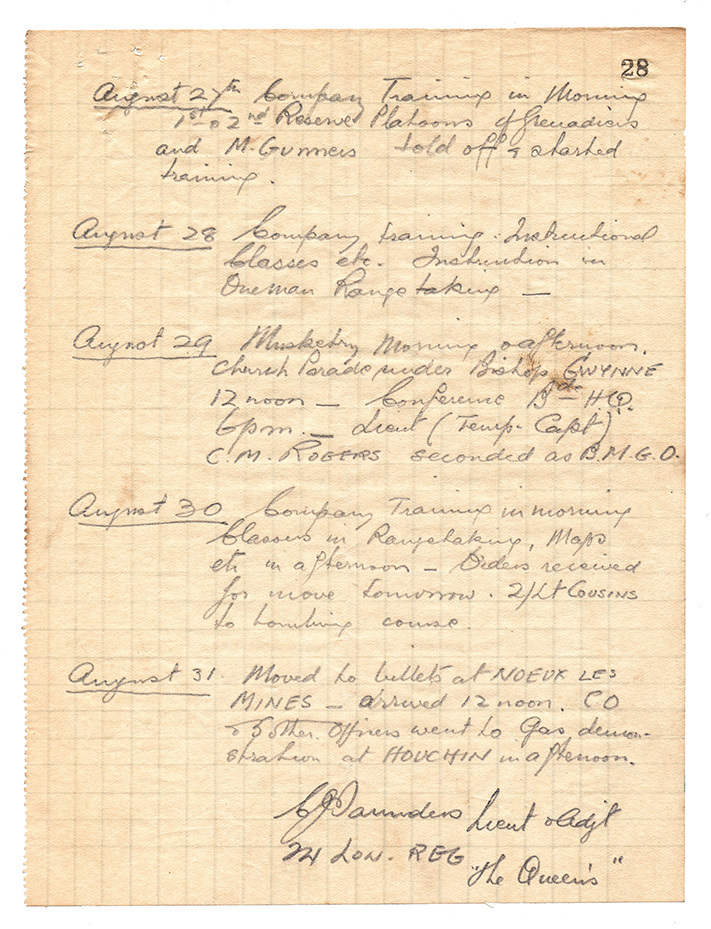 28
August 27th Company Training in Morning
1st & 2nd Reserve Platoons of Grenadiers
and M. Gunners told off & started
training.
August 28 Company training. Instructional
Classes etc. Instruction in
One man Range taking —
August 29 Musketry Morning & afternoon.
Church Parade under Bishop GWYNNE
12 noon — Conference Bde H.Q.
6pm. — Lieut (Temp. Capt)
C.M. ROGERS seconded as B.M.G.O.
August 30 Company Training in morning
Classes in Rangetaking, Maps
etc in afternoon — Orders received
for move tomorrow. 2/Lt COUSINS
to bombing course.
August 31. Moved to billets at NOEUX LES
MINES — arrived 12 noon. CO
& 5 other Officers went to Gas demon-
stration at HOUCHIN in afternoon.
Saunders Lieut & Adjt
LON. REG
"The Queen's"